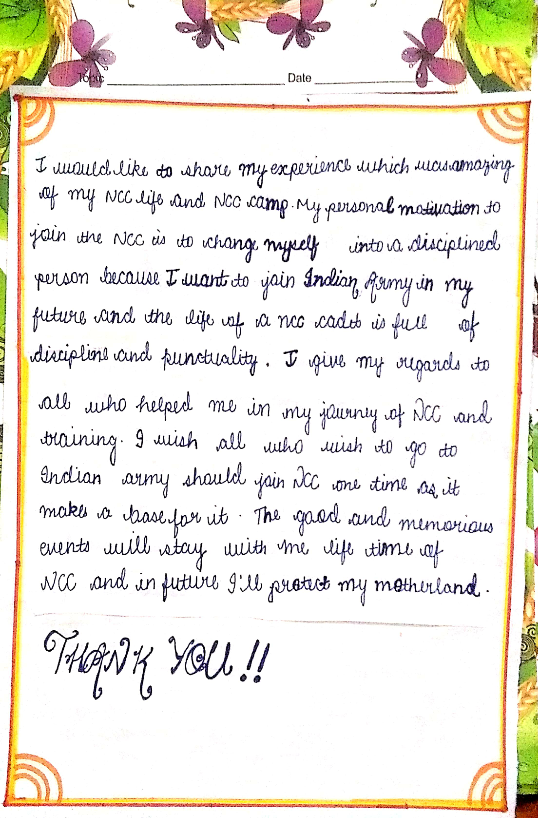 Topic Date
I would like to share my experience which was amazing
of my NCC life and NCC camp. My personal motivation to
join the NCC is to change myself into a disciplined
person because I want to join Indian Army in my
future and the life of a ncc cadet is full of
discipline and punctuality. I give my regards to
all who helped me in my journey of NCC and
training. I wish all who wish to go to
Indian army should join NCC one time as it
makes a base for it. The good and memorious
events will stay with me life time of
NCC and in future I'll protect my motherland.
THANK YOU!!